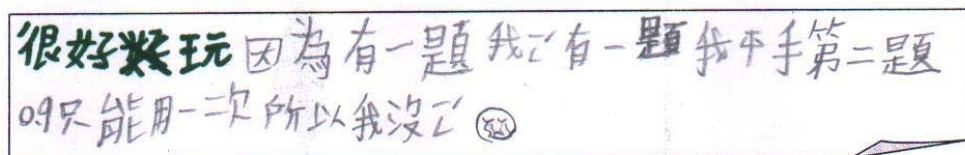 很好玩因為有一題我ㄛ有一題我平手第二題
0.9只能用一次所以我沒ㄛ